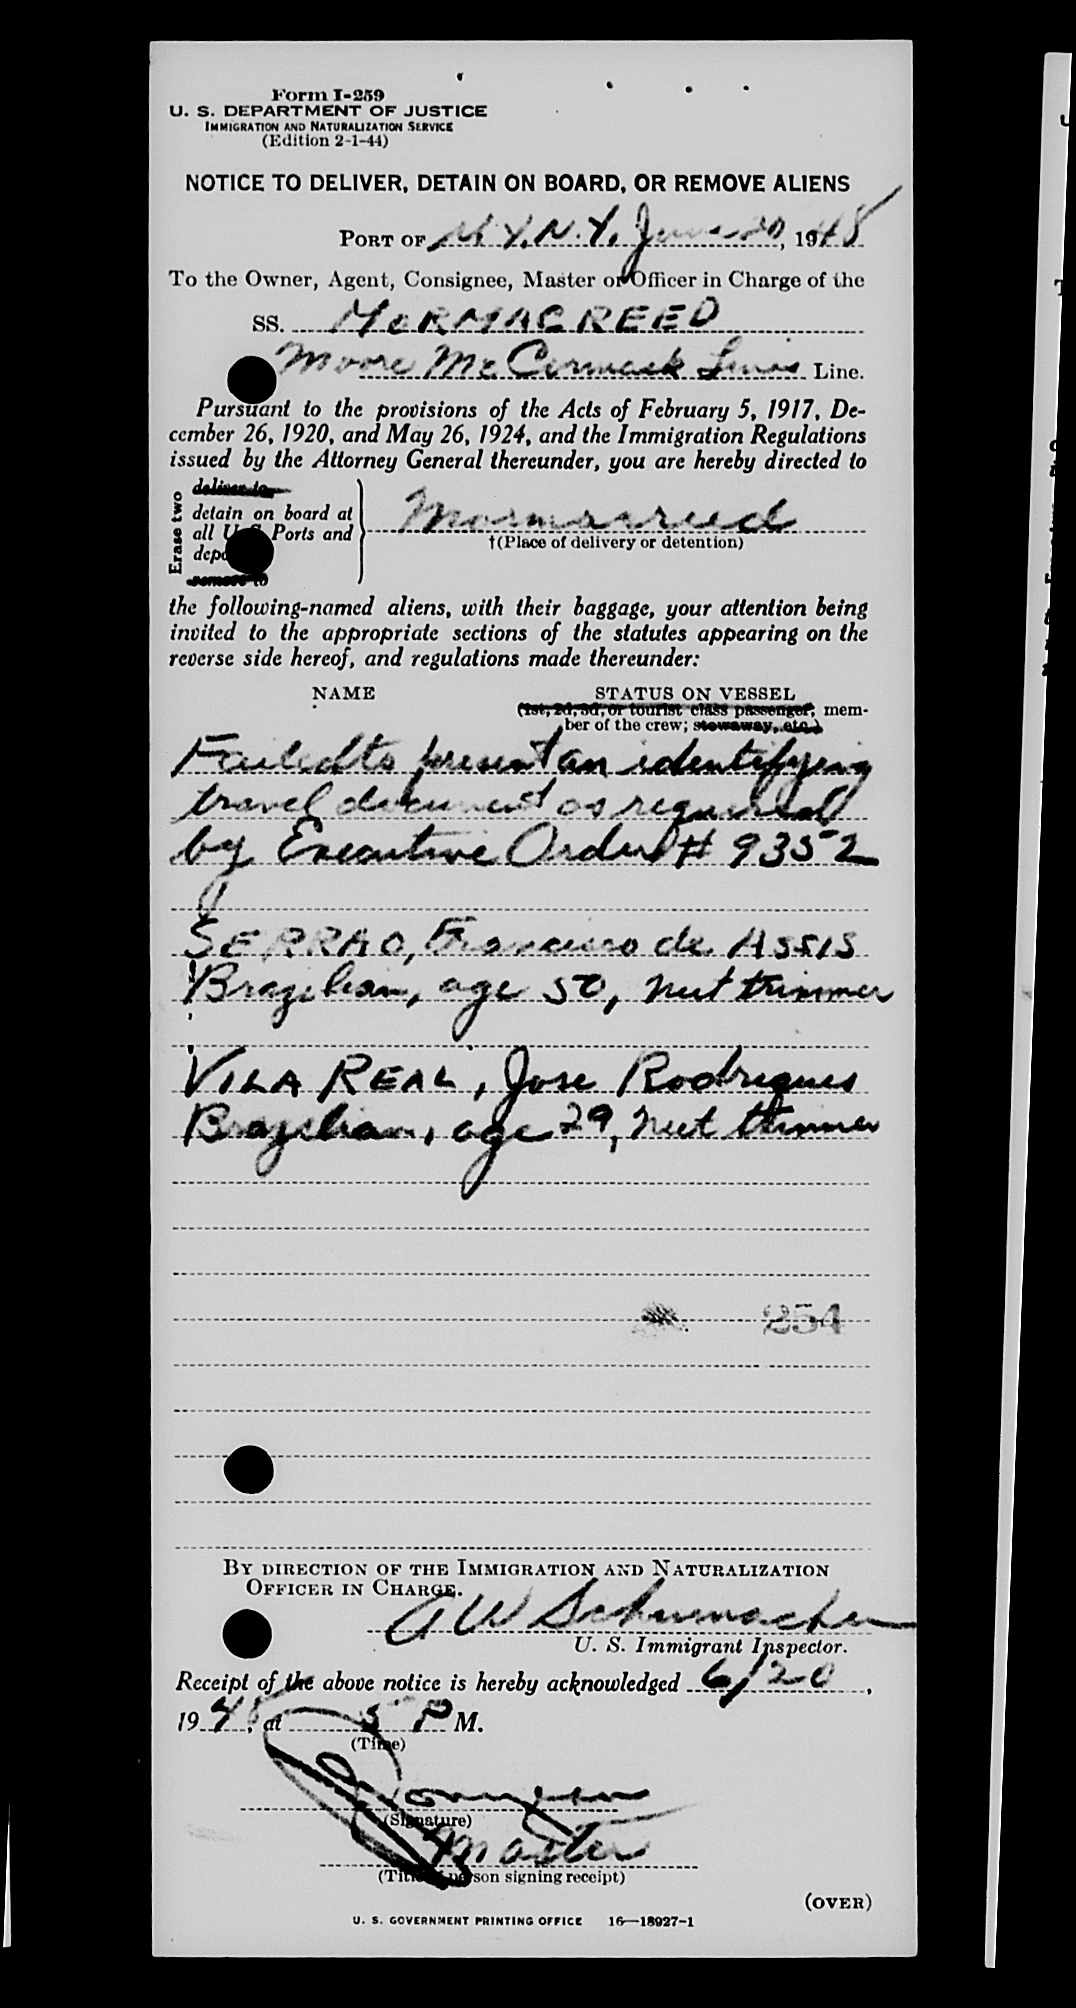 Form I-259
U. S. DEPARTMENT OF JUSTICE
IMMIGRATION AND NATURALIZATION SERVICE
(Edition 2-1-44)
NOTICE TO DELIVER, DETAIN ON BOARD, OR REMOVE ALIENS
PORT OF N.Y.N.Y. June 20, 1948
To the Owner, Agent, Consignee, Master or Officer in Charge of the
SS. MORMACREED
Moore McCormack Lines Line.
Pursuant to the provisions of the Acts of February 5, 1917, De-
cember 26, 1920, and May 26, 1924, and the Immigration Regulations
issued by the Attorney General thereunder, you are hereby directed to
Erase two
deliver to
detain on board at
all U S Ports and
remove to
Mormacreed
†(Place of delivery or detention)
the following-named aliens, with their baggage, your attention being
invited to the appropriate sections of the statutes appearing on the
reverse side hereof, and regulations made thereunder:
NAME STATUS ON VESSEL
(1st, 2d, 3d, or tourist class passenger; mem-
ber of the crew; stowaway, etc.)
Failed to present an identifying
travel document as required
by Executive Order # 9352
SERRAO, Francisco de Assis
Brazilian, age 50, nut trimmer
VILA REAL, Jose Rodrigues
Brazilian, age 29, nut trimmer
254
BY DIRECTION OF THE IMMIGRATION AND NATURALIZATION
OFFICER IN CHARGE.
A W Schumacher
U. S. Immigrant Inspector.
Receipt of the above notice is hereby acknowledged 6/20,
1948, at 5 P M.
(Time)
(Signature)
Master
(Title of person signing receipt)
(OVER)
U. S. GOVERNMENT PRINTING OFFICE 16—18927-1